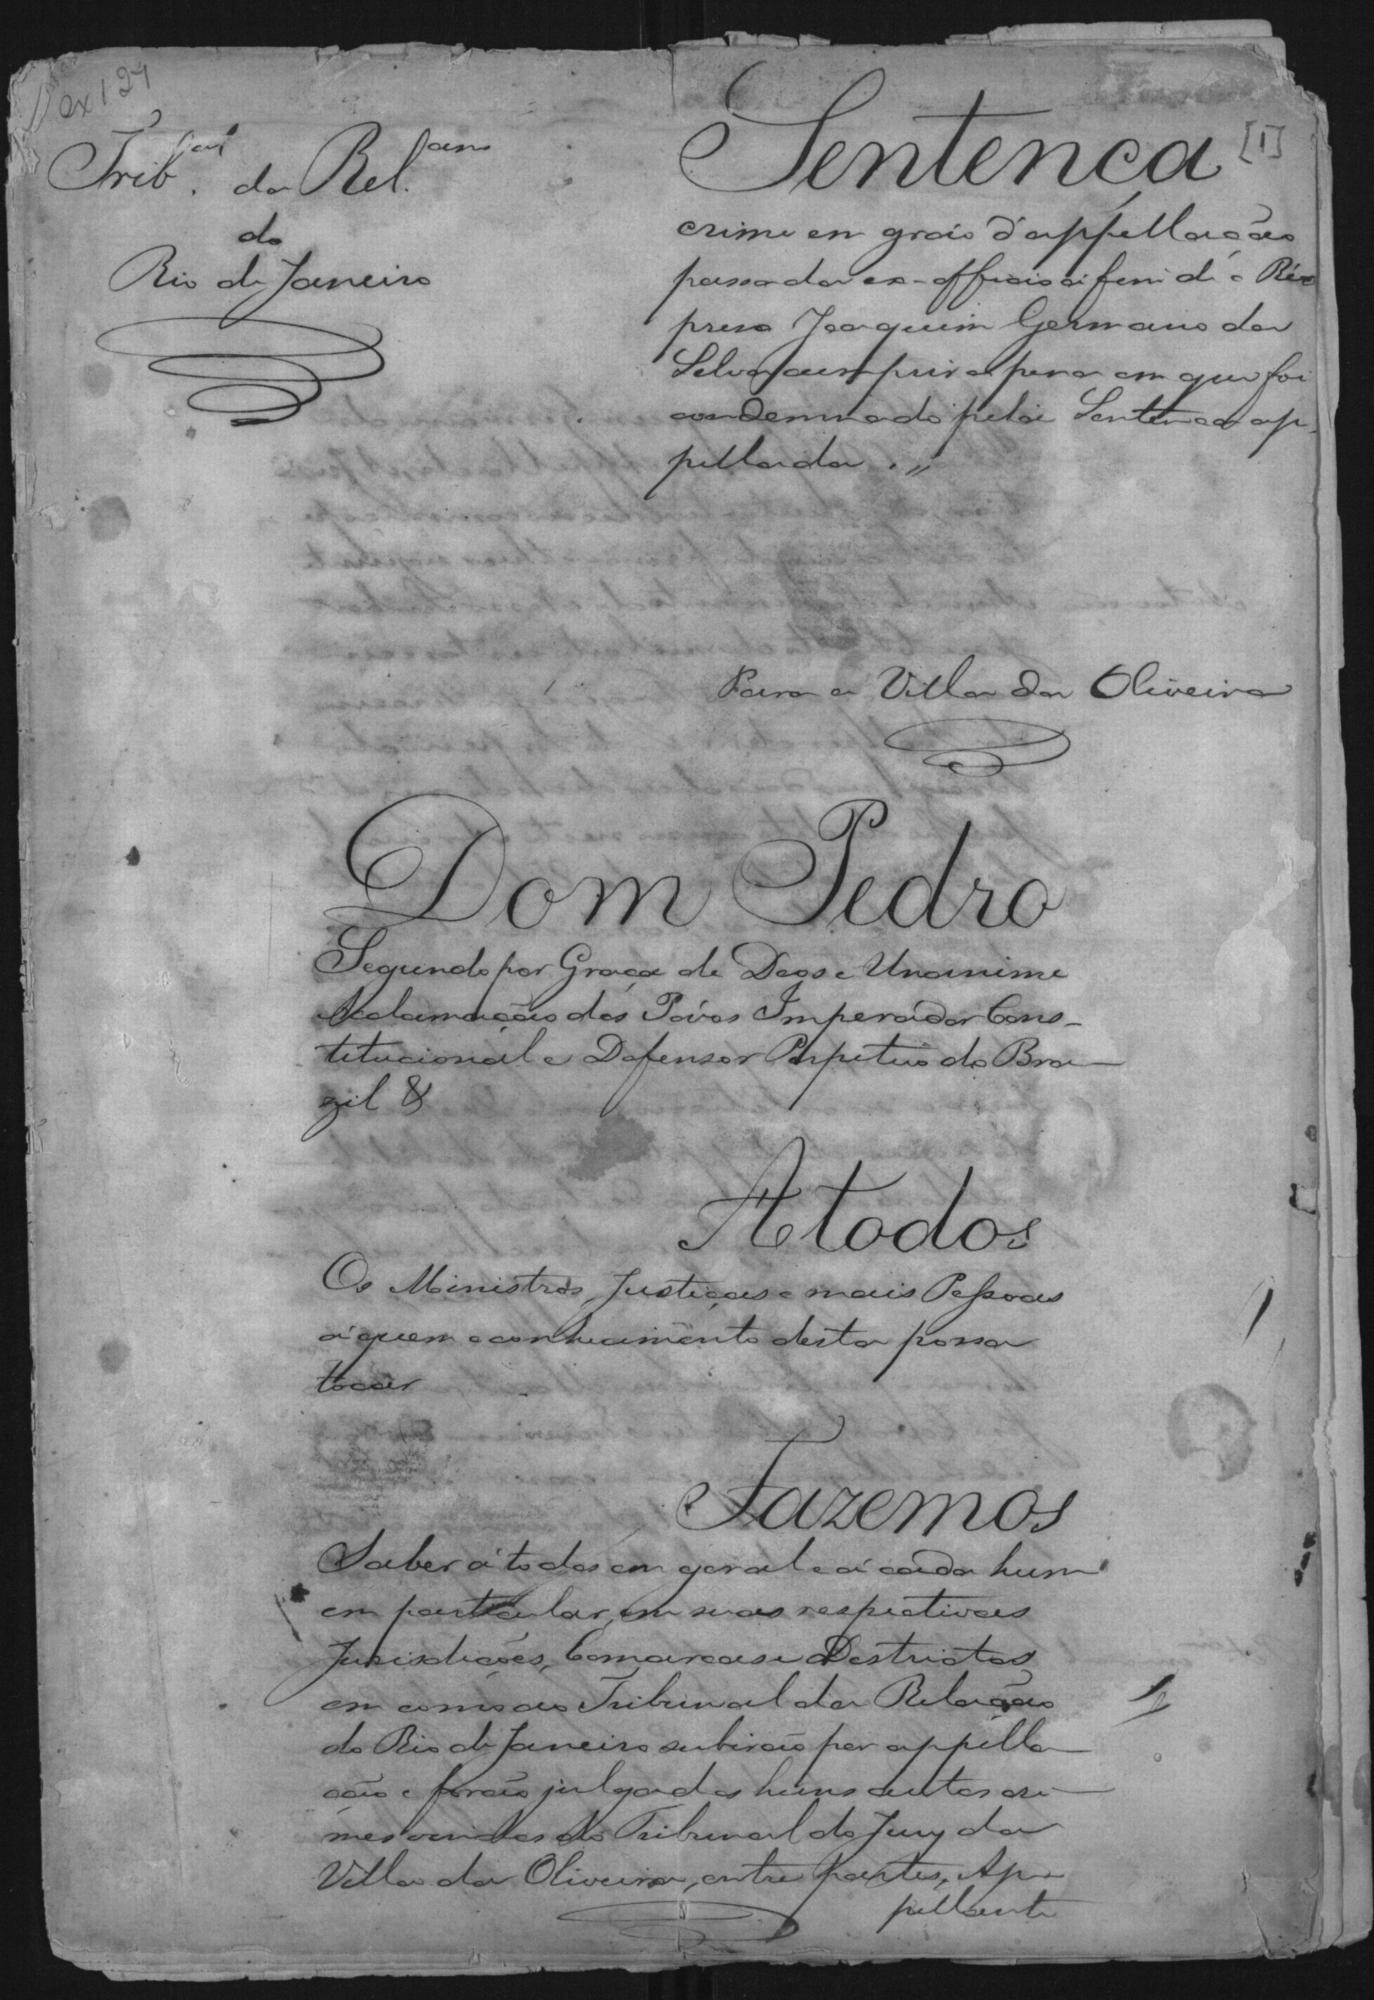 Cx 124
Trib.al da Rel.am
do
Rio de Janeiro
Sentença
[1]
crime em gráo d'appellação
passada ex-officio á fim de o Réo
preso Joaquim Germano da
Silva cumprir a pena em que foi
condemnado pela Sentença ap-
pellada .,,
Para a Villa da Oliveira
Dom Pedro
Segundo por Graça de Deos e Unanime
Acclamação dos Póvos Imperador Cons-
titucional e Defensor Perpetuo do Bra-
zil &
A todos
Os Ministros, Justiças e mais Pessoas
á quem o conhecimento desta possa
tocar
Fazemos
Saber á todos em geral e á cada hum
em particular, em suas respectivas
Jurisdicções, Comarcas e Destrictos
em como ao Tribunal da Relação
do Rio de Janeiro subirão por appella-
ção e forão julgados huns autos cri-
mes vindos do Tribunal do Jury da
Villa da Oliveira, entre partes, Ap-
pellante